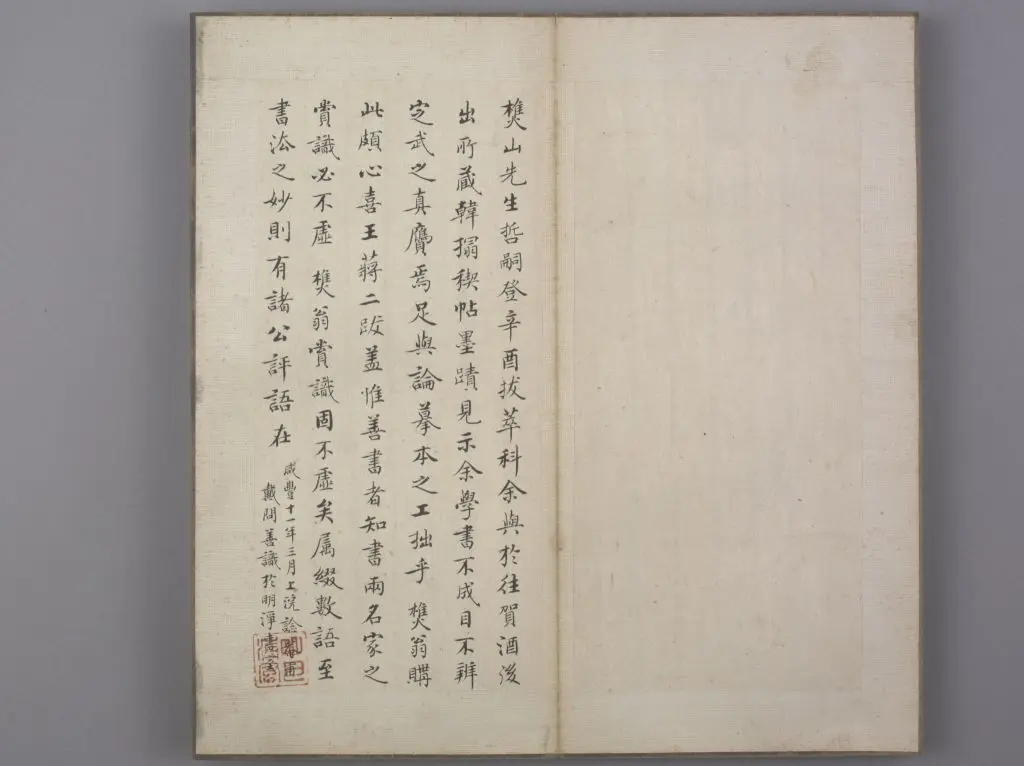 樵山先生哲嗣登辛酉拔萃科余與於往賀酒後
出所藏韓搨稧帖墨蹟見示余學書不成目不辨
定武之真贗焉足與論摹本之工拙乎 樵翁購
此頗心喜王蔣二跋盖惟善書者知書兩名家之
賞識必不虛 樵翁賞識固不虛矣屬綴數語至
書法之妙則有諸公評語在
咸豐十一年三月上浣
戴問善識於明淨